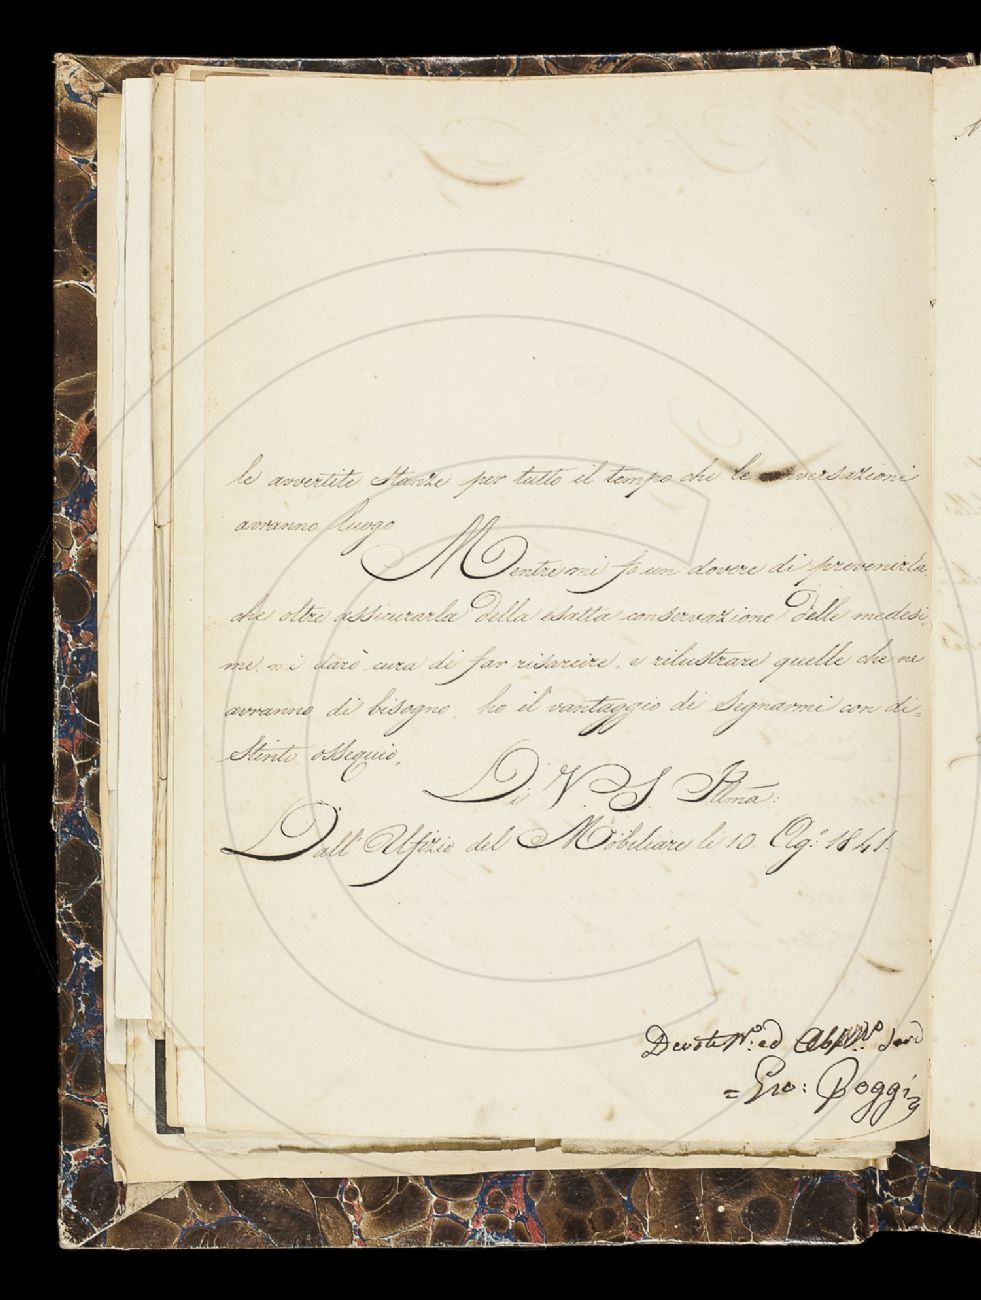 le avvertite stanze per tutto il tempo che le conversazioni
avranno luogo
Mentre mi fo un dovere di prevenirla,
che oltre assicurarla della esatta conservazione delle medesi,
me, mi darò cura di far risarcire, e rilustrare quelle che ne
avranno di bisogno, ho il vantaggio di segnarmi con di=
stinto ossequio.
Di V. S. Illma:
Dall' Ufizio del Mobiliare li 10. Ag:o 1841.
Devotmo. ed Obbmo.
=Gio: Poggi